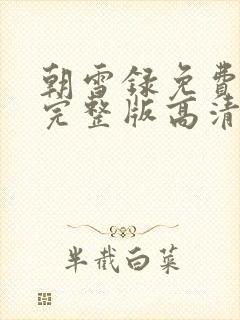 朝雪録免費
完整版高清
半截白菜